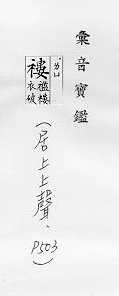 彙音寶鑑
褸 襤褸衣破
(居上上聲、P503)